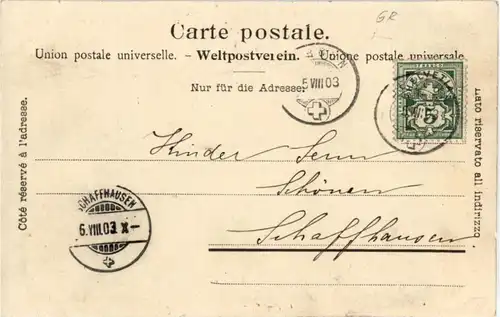 GR
Carte postale.
Union postale universelle. – Weltpostverein. – Unione postale universale
Nur für die Adresse:
5 VIII 03
HELVETIA
5
Côté réservé à l'adresse.
Lato riservato all indirizzo.
Kinder Senn
Schönen
Schaffhausen
SCHAFFHAUSEN
6.VIII.03 X–